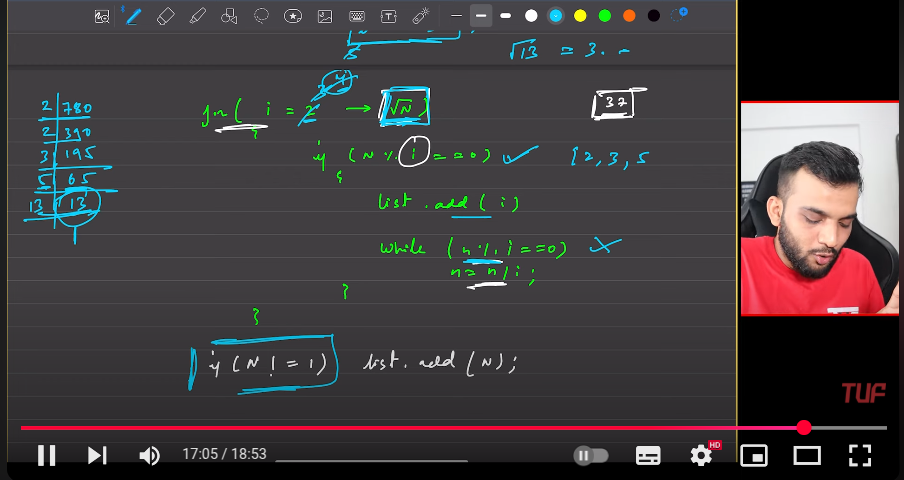 5
√13 = 3. -
2 | 780
2 | 390
3 | 195
5 | 65
13 | 13
1
for( i = 2 → √N)
4
{
37
if (N % i == 0) ✓
{
[2, 3, 5
list.add( i)
while (n % i == 0) ✗
n = n / i ;
}
}
if (N ! = 1) list.add (N);
TUF
17:05 / 18:53
HD